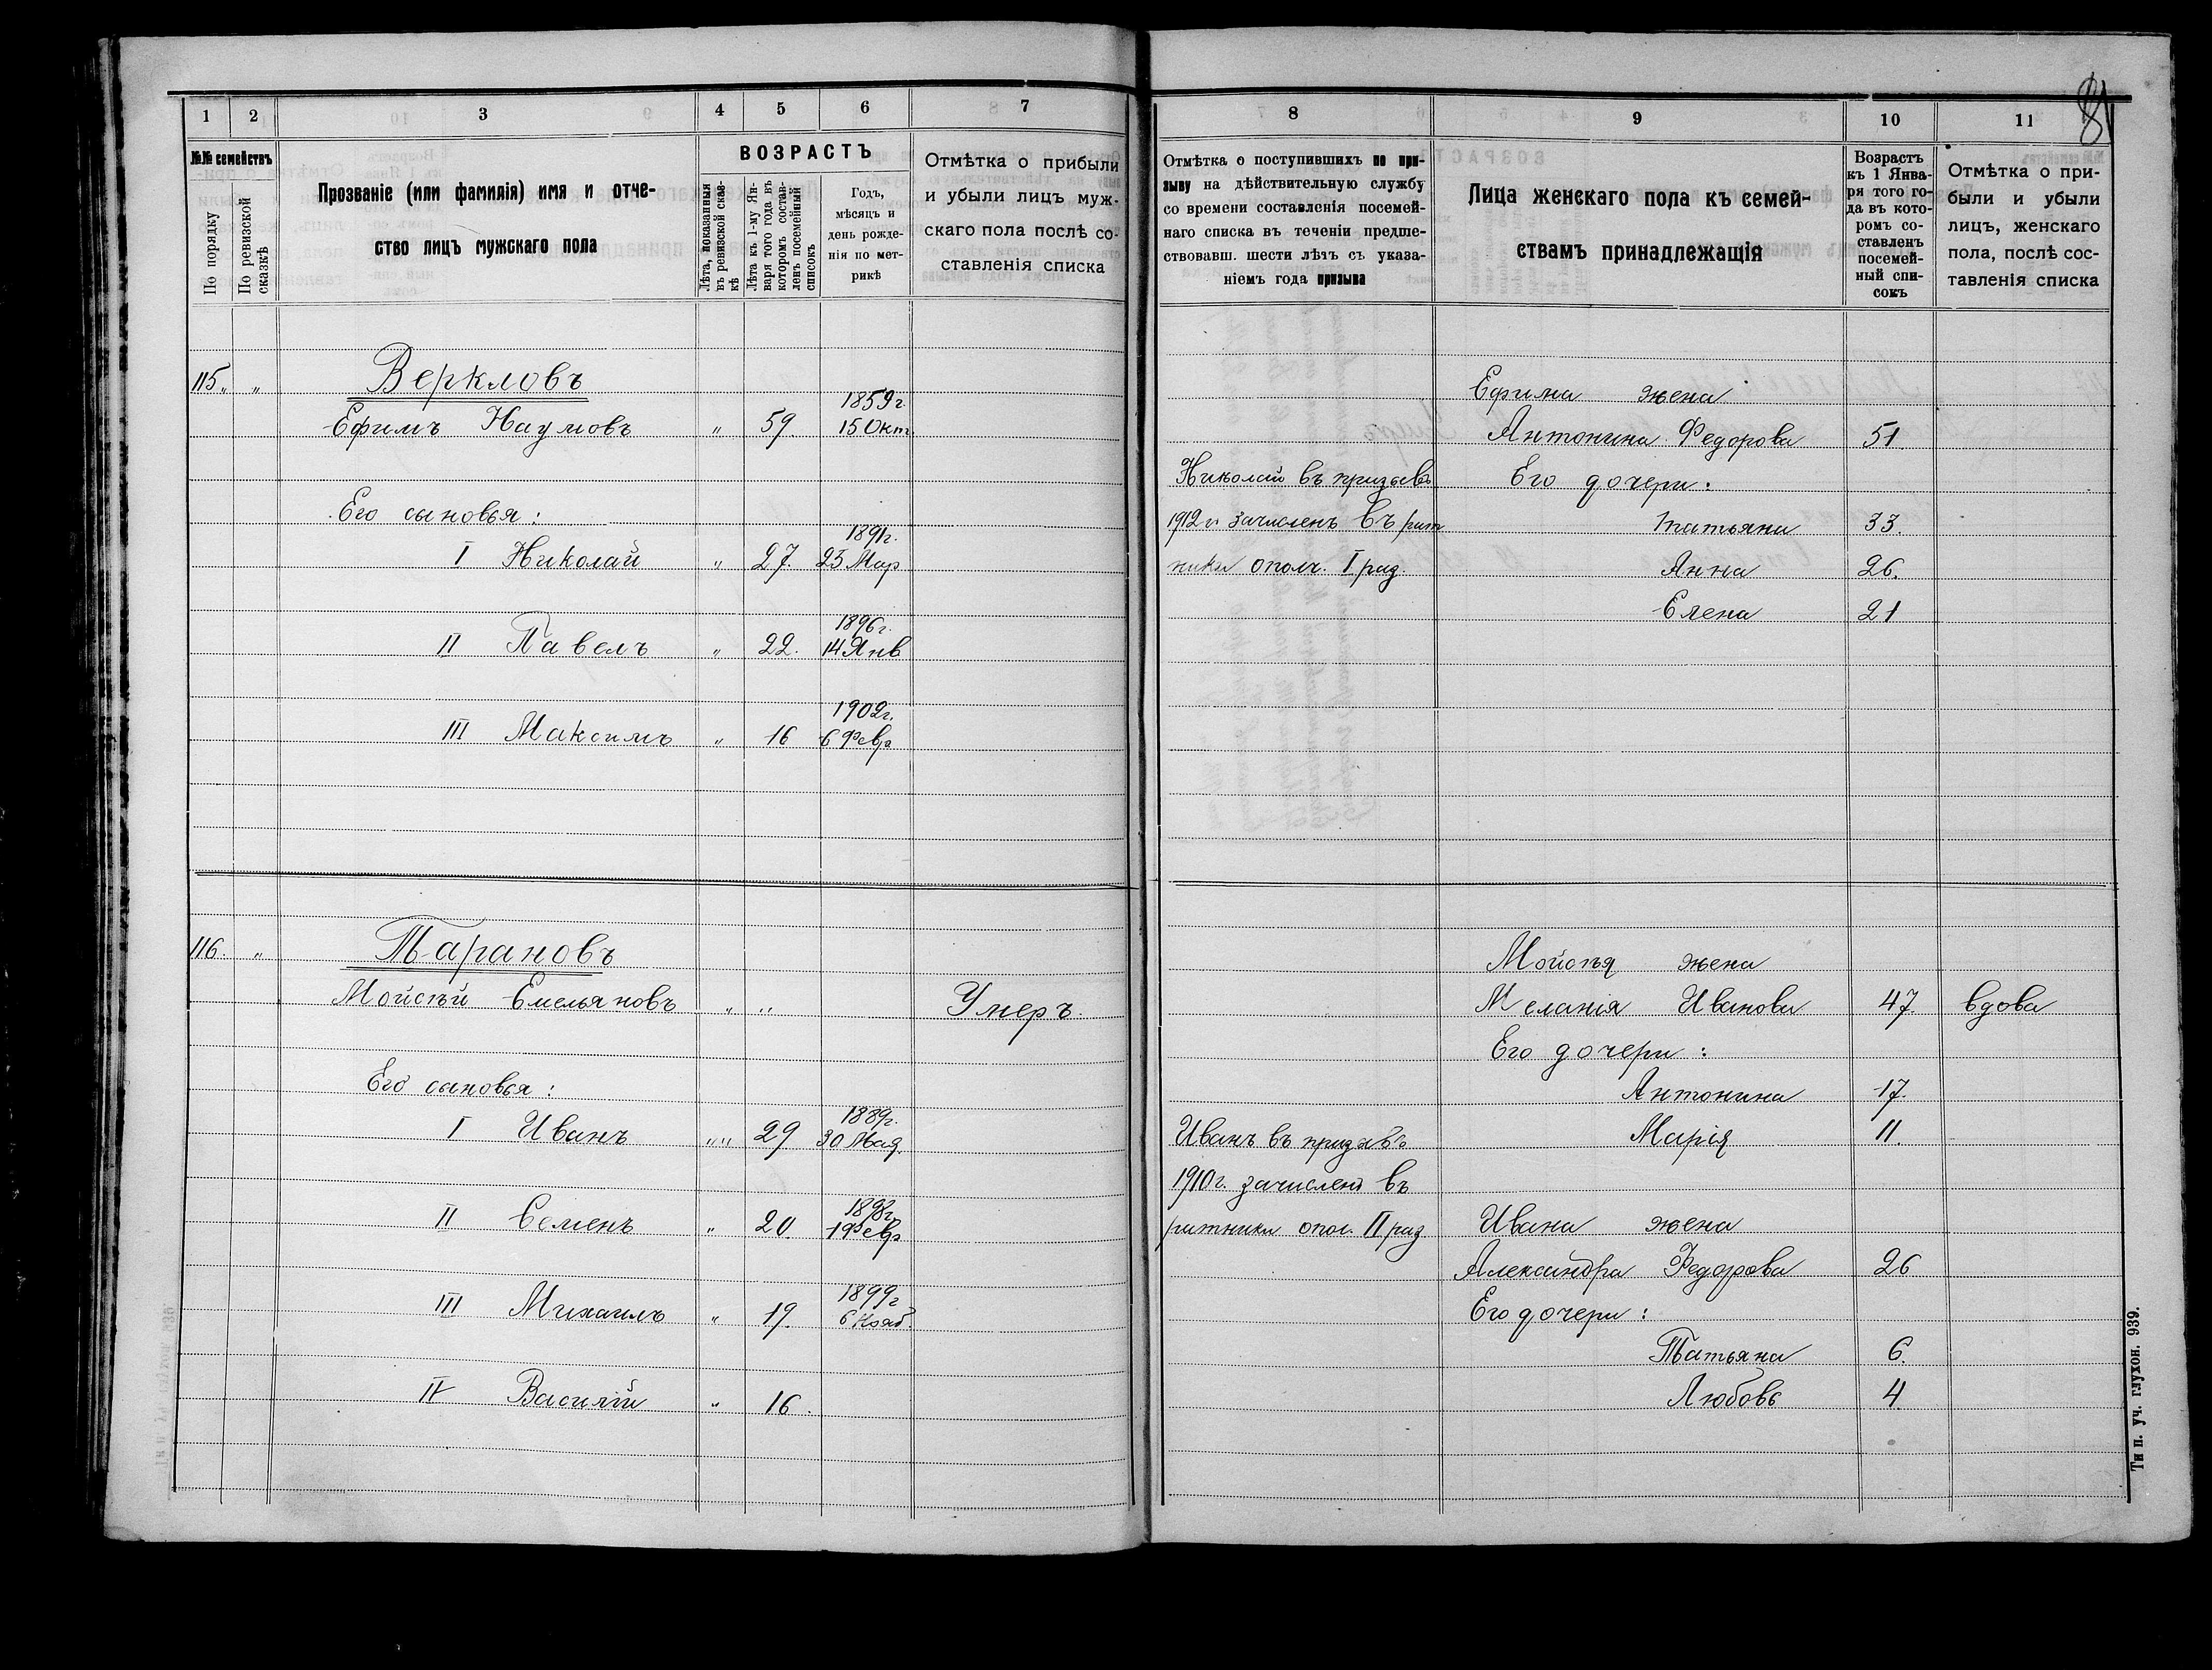 1 2 3 4 5 6 7
№№ семействъ
По порядку
По ревизской сказкѣ
Прозваніе (или фамилія) имя и отче-
ство лицъ мужскаго пола
ВОЗРАСТЪ
Лѣта, показанныя въ ревизской сказ-кѣ
Лѣта къ 1-му Ян-варя того года въ которомъ состав-ленъ посемейный списокъ
Годъ,
мѣсяцъ и
день рожде-
нія по мет-
рикѣ
Отмѣтка о прибыли
и убыли лицъ муж-
скаго пола послѣ со-
ставленія списка
115 „ „ Веркловъ
1859г.
Ефимъ Наумовъ „ 59. 15 Окт
Его сыновья:
1891г.
I Николай „ 27. 23 Мар
1896г.
II Павелъ „ 22. 14 Янв
1902г.
III Максимъ „ 16 6 Февр
116. „ Тарановъ
Мойсѣй Емельяновъ „ „ Умеръ.
Его сыновья:
1889г.
I Иванъ „ „ 29 30 Мая
1898г.
II Семенъ „ 20. 1 Февр
1899г
III Михаилъ „ 19. 6 Нояб.
IV Василій „ 16.
8 9 10 11
81
Отмѣтка о поступившихъ по при-
зыву на дѣйствительную службу
со времени составленія посемей-
наго списка въ теченіи предше-
ствовавш. шести лѣтъ съ указа-
ніемъ года призыва
Лица женскаго пола къ семей-
ствамъ принадлежащія
Возрастъ
къ 1 Янва-
ря того го-
да въ кото-
ромъ со-
ставленъ
посемей-
ный спи-
сокъ
Отмѣтка о при-
были и убыли
лицъ, женскаго
пола, послѣ сос-
тавленія списка
Ефима жена
Антонина Федорова 51.
Николай въ призывъ Его дочери:
1912 г зачисленъ въ рат Татьяна 33.
ники ополч. I раз. Анна 26.
Елена 21
Мойсѣя жена
Меланія Иванова 47. вдова
Его дочери:
Антонина 17.
Иванъ въ призывъ Марія 11.
1910г. зачисленъ въ
ратники опол. II раз Ивана жена
Александра Федорова 26
Его дочери:
Татьяна 6.
Любовь 4
Тип. уч. глухон. 939.